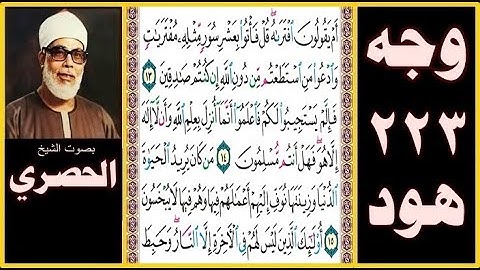 وجه
٢٢٣
هود
أَمْ يَقُولُونَ ٱفْتَرَىٰهُ قُلْ فَأْتُوا۟ بِعَشْرِ سُوَرٍ مِّثْلِهِۦ مُفْتَرَيَٰتٍ
وَٱدْعُوا۟ مَنِ ٱسْتَطَعْتُم مِّن دُونِ ٱللَّهِ إِن كُنتُمْ صَٰدِقِينَ ١٣
فَإِلَّمْ يَسْتَجِيبُوا۟ لَكُمْ فَٱعْلَمُوٓا۟ أَنَّمَآ أُنزِلَ بِعِلْمِ ٱللَّهِ وَأَن لَّآ إِلَٰهَ
إِلَّا هُوَ ۖ فَهَلْ أَنتُم مُّسْلِمُونَ ١٤ مَن كَانَ يُرِيدُ ٱلْحَيَوٰةَ
ٱلدُّنْيَا وَزِينَتَهَا نُوَفِّ إِلَيْهِمْ أَعْمَٰلَهُمْ فِيهَا وَهُمْ فِيهَا لَا يُبْخَسُونَ
١٥ أُو۟لَٰٓئِكَ ٱلَّذِينَ لَيْسَ لَهُمْ فِى ٱلْءَاخِرَةِ إِلَّا ٱلنَّارُ ۖ وَحَبِطَ
بصوت الشيخ
الحصري